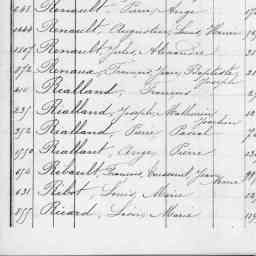 Renault, Pierre Ange
1444 Renault, Augustin Louis Marie
1107 Renault, Jules Alexandre
1072 Renaux, François Jean Baptiste Joseph
410 Rialland, François
235 Rialland, Joseph Mathurin
352 Rialland, Pierre Pascal
1750 Riallant, Ange Pierre
154 Ribault, François Toussaint Jean Marie
631 Ribot, Louis Marie
Ricard, Léon Marie